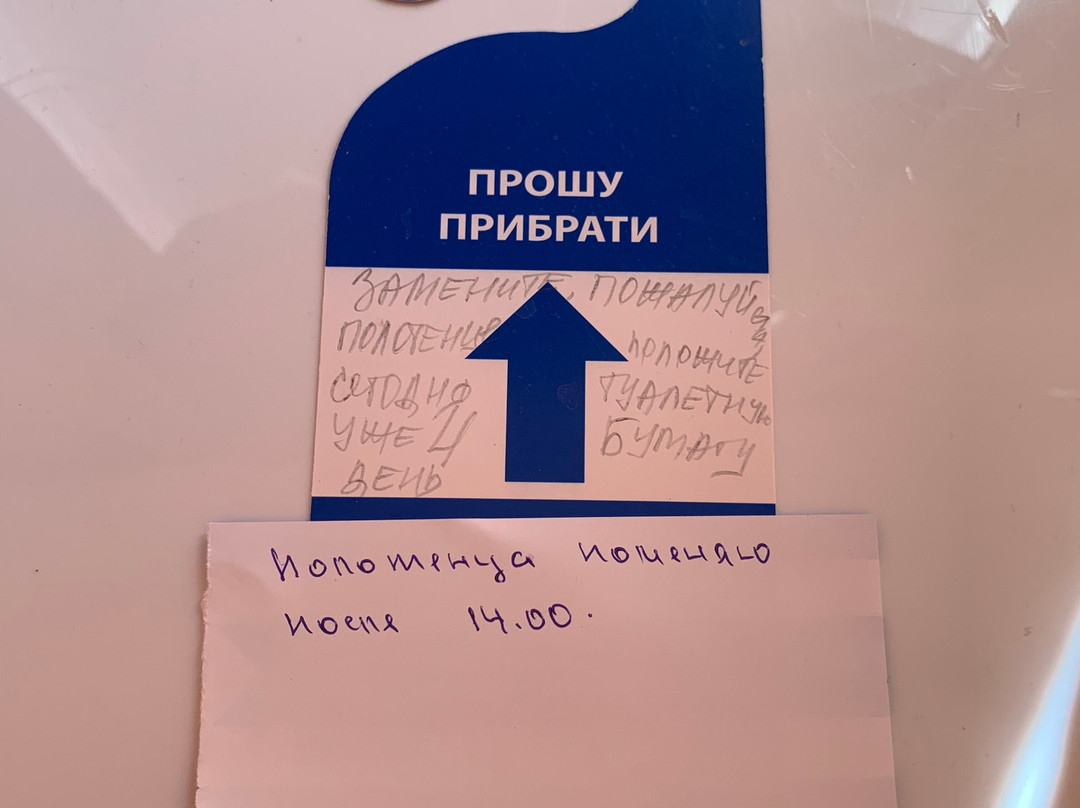 ПРОШУ
ПРИБРАТИ
ЗАМЕНИТЕ, ПОЖАЛУЙСТА,
ПОЛОТЕНЦЕ
СЕГОДНЯ
УЖЕ 4
ДЕНЬ
ПОЛОЖИТЕ
ТУАЛЕТНУЮ
БУМАГУ
Полотенца поменяю
после 14.00.